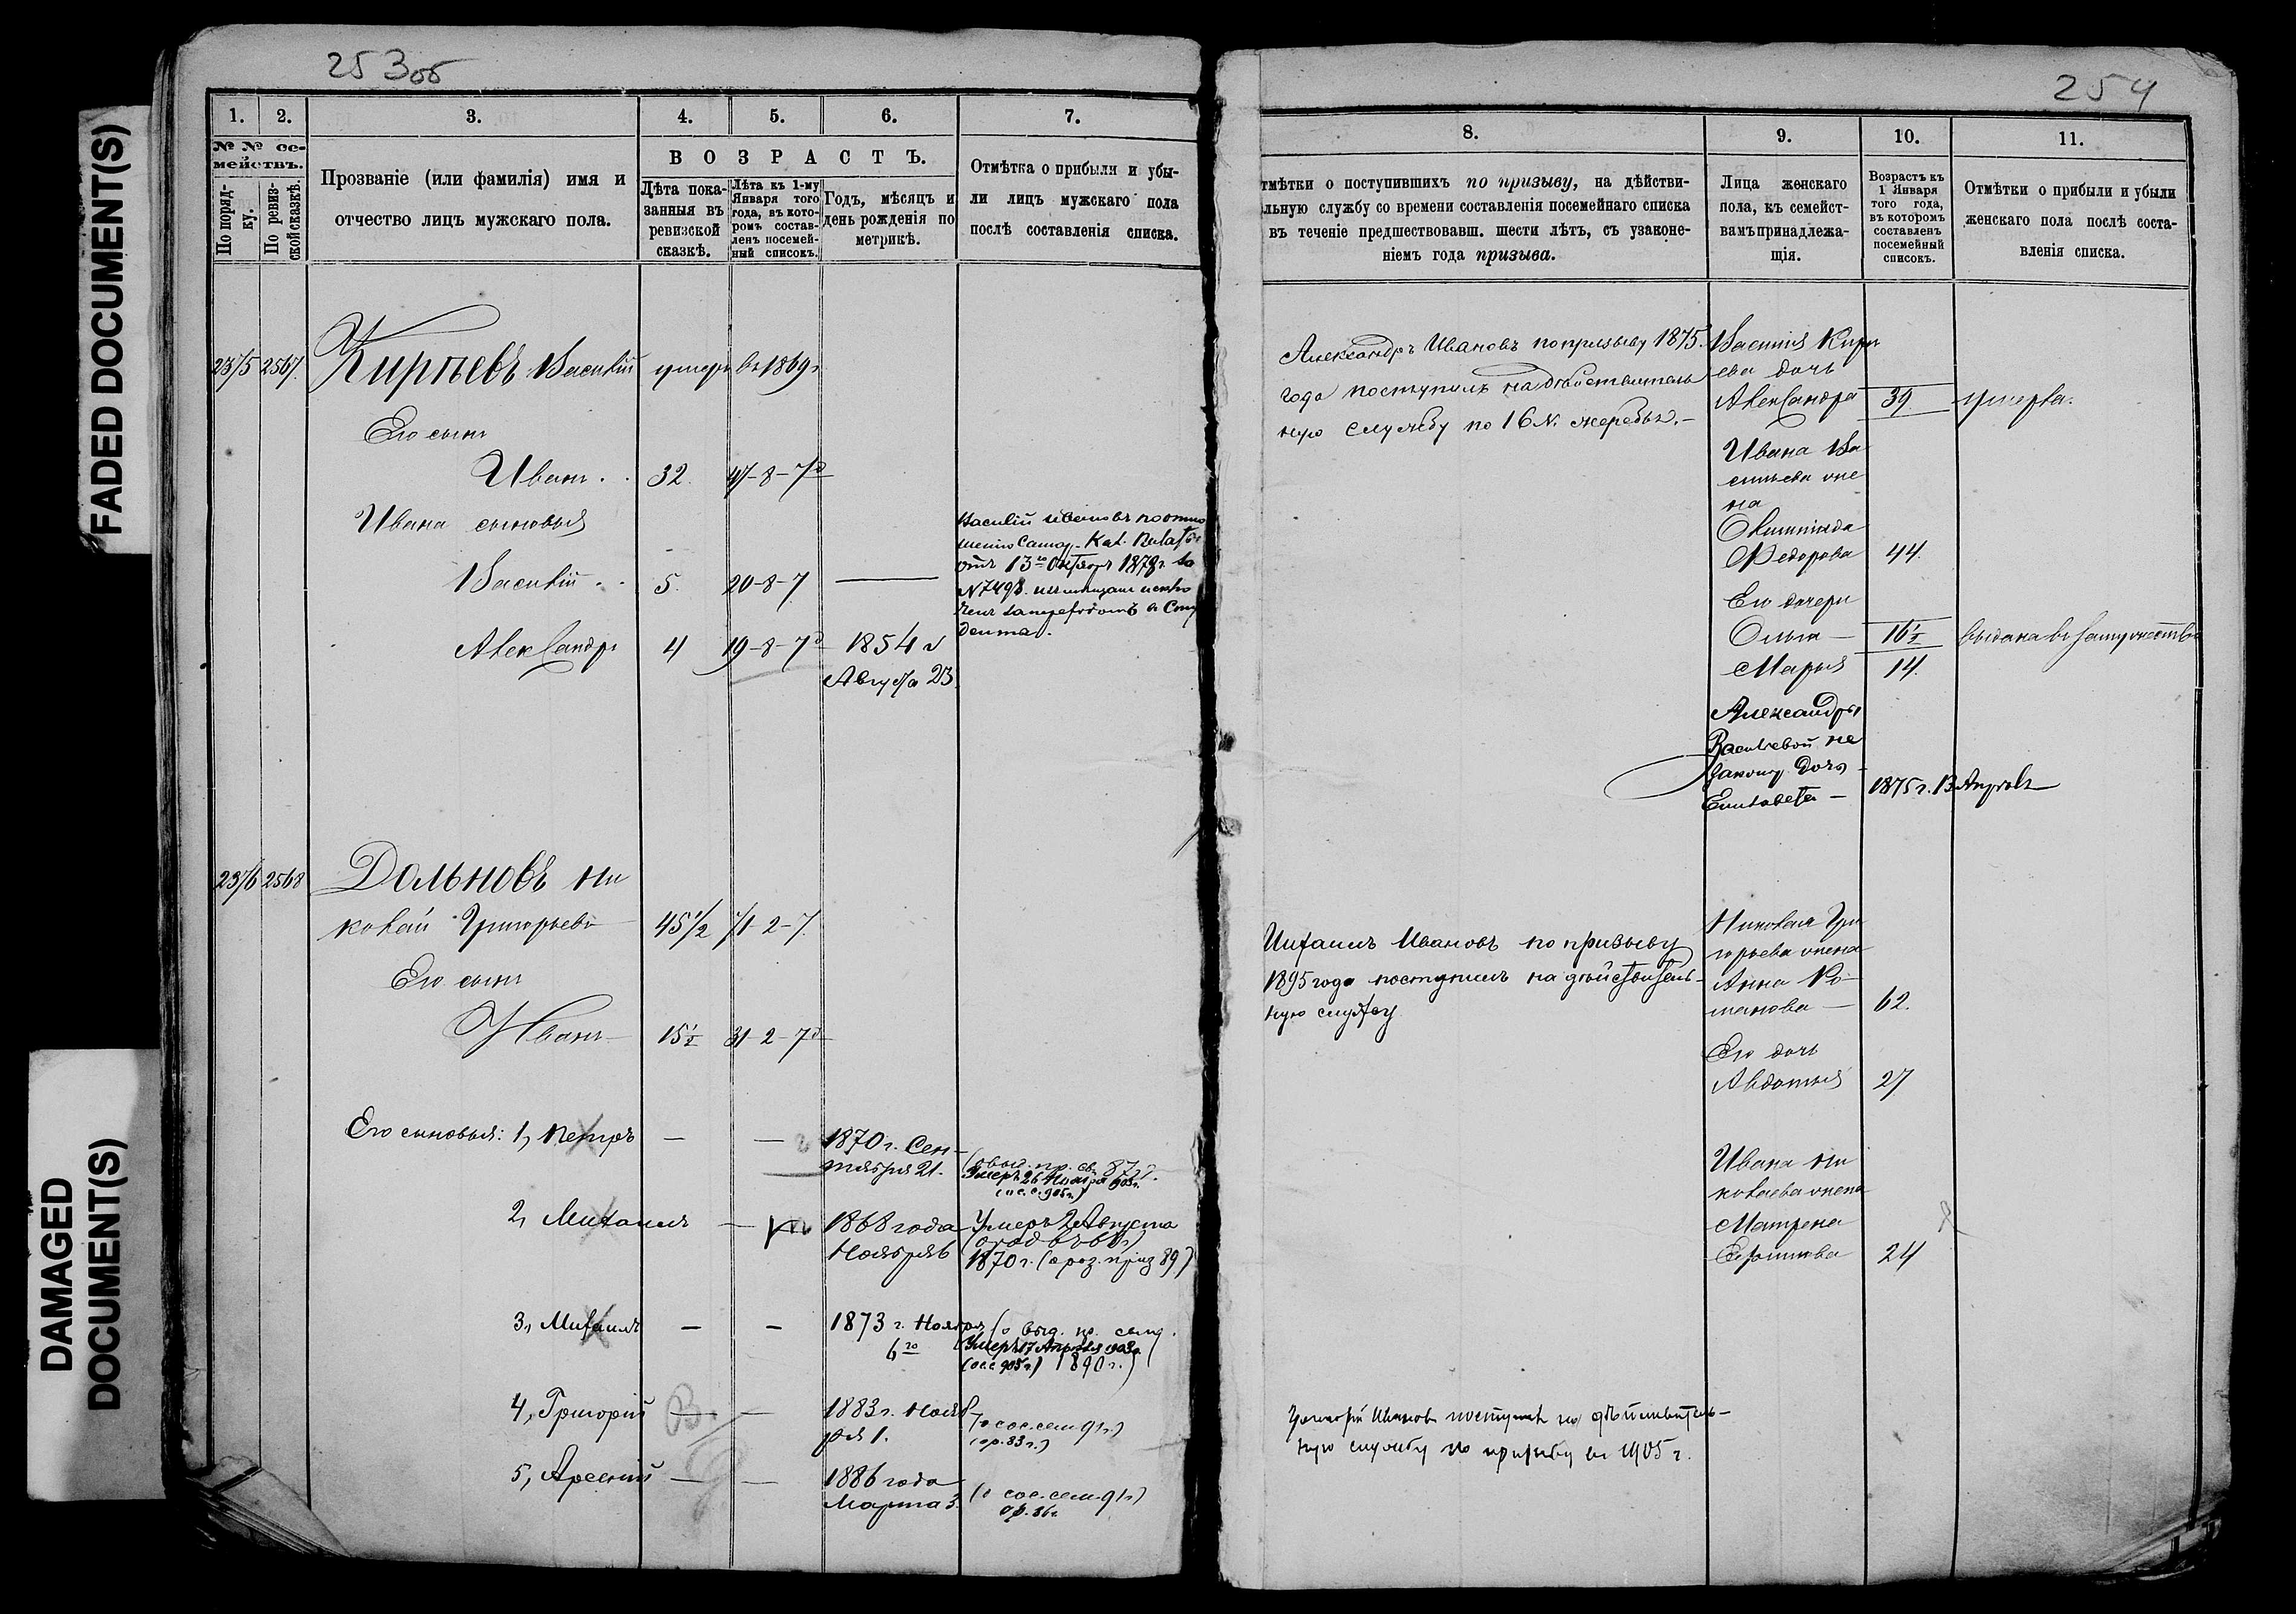 FADED DOCUMENT(S)
DAMAGED
DOCUMENT(S)
253об
1.
2.
3.
4.
5.
6.
7.
№ № се-
мействъ.
По поряд-
ку.
По ревиз-
ской сказкѣ.
Прозваніе (или фамилія) имя и
отчество лицъ мужскаго пола.
ВОЗРАСТЪ.
Лѣта пока-
занныя въ
ревизской
сказкѣ.
Лѣта къ 1-му
Января того
года, въ кото-
ромъ состав-
ленъ посемей-
ный списокъ.
Годъ, мѣсяцъ и
день рожденія по
метрикѣ.
Отмѣтка о прибыли и убы-
ли лицъ мужскаго пола
послѣ составленія списка.
2375 2567. Кирѣевъ Василій умеръ въ 1869г
Его сынъ
Иванъ 32. 47-8-7
Ивана сыновья
Василій 5. 20-8-7
Василій Ивановъ по отно
шенію Самар. Каз. Палаты
отъ 13го 1878г за
№7498. изъ мѣщанъ исклю
Александръ 4 19-8-7 1854 г
Августа 23
2376 2568 Дольновъ Ни
колай Григорьевъ 45 1/2 71-2-7.
Его сынъ
Иванъ 15 1/2 31-2-7
Его сыновья: 1, Петръ — — 1870 г. Сен-
тября 21.
Умеръ 26 Ноября 903г.
(п с. с. 905г.)
2, Михаилъ — 1868 года
Ноября 6
Умеръ 2 Августа
1870 г. (о роз. приз 89)
3, Михаилъ — — 1873 г. Ноября
6го
Умеръ 17 Апрѣля
1890 г.)
4, Григорій — — 1883 г. Нояб
ря 1.
(о сос. сем. 91г.)
(ор. 83 г.)
5, Арсеній — — 1886 года
Марта 3.
(о сос. сем. 91г)
ор. 86г.
254
8.
9.
10.
11.
тмѣтки о поступившихъ по призыву, на дѣйстви-
льную службу со времени составленія посемейнаго списка
въ теченіе предшествовавш. шести лѣтъ, съ узаконе-
ніемъ года призыва.
Лица женскаго
пола, къ семейст-
вамъ принадлежа-
щія.
Возрастъ къ
1 Января
того года,
въ которомъ
составленъ
посемейный
списокъ.
Отмѣтки о прибыли и убыли
женскаго пола послѣ соста-
вленія списка.
Александръ Ивановъ по призыву 1875.
года поступилъ на дѣйствитель
ную службу по 16 №. жеребья.—
Василія Кирѣ
ева дочь
Александра 39 умерла.
Ивана Ва
сильева же
на
Олимпіада
Федорова 44.
Его дочери
Ольга — 16 1/2 выдана въ замужество
Марья 14.
Александры
Васильевой не
законн. дочь
Елизавета — 1875 г. 13 Апрѣля
Михаилъ Ивановъ по призыву
1895 года поступилъ на дѣйствитель-
ную службу
Николая Гри
горьева жена
Анна Ро-
манова — 62.
Его дочь
Авдотья 27
Ивана Ни
колаева жена
Матрена
Ефимова 24
Григорій Ивановъ поступилъ на дѣйствитель-
ную службу по призыву въ 1905 г.